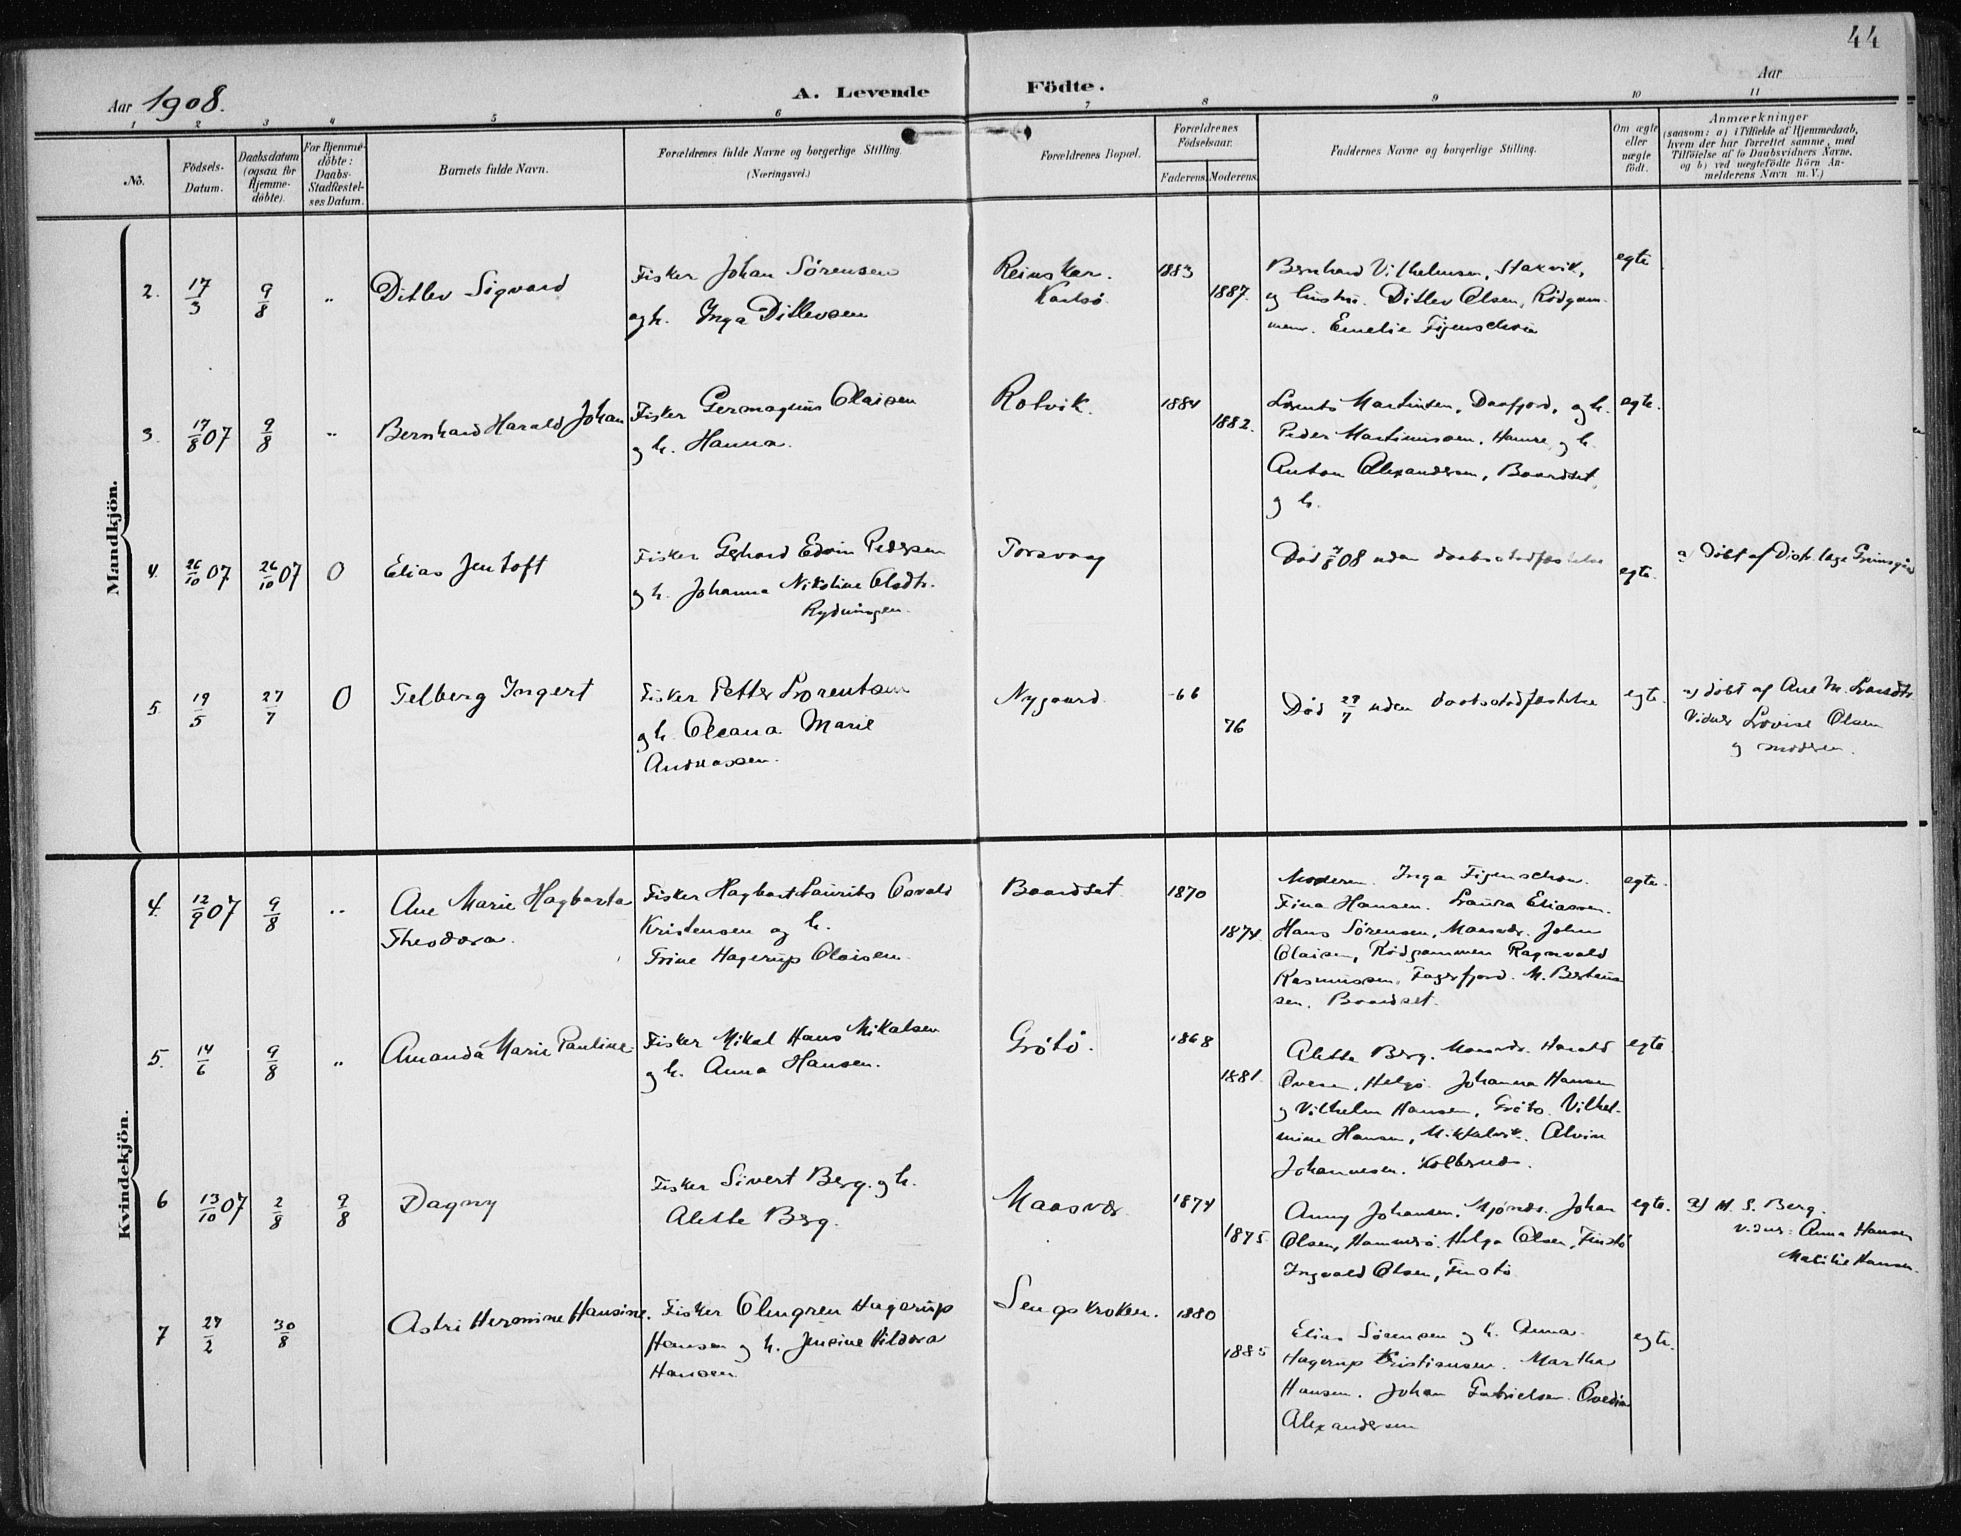 44
Aar 1908.
A. Levende Födte.
Aar
1 2 3 4 5 6 7 8 9 10 11
No.
Födsels-
Datum.
Daabsdatum
(ogsaa for
Hjemme-
döbte).
For Hjemme-
döbte:
Daabs-
Stadfestel-
ses Datum.
Barnets fulde Navn.
Forældrenes fulde Navne og borgerlige Stilling.
(Næringsvei.)
Forældrenes Bopæl.
Forældrenes
Födselsaar.
Faderens. Moderens.
Faddernes Navne og borgerlige Stilling.
Om ægte
eller
uægte
födt.
Anmærkninger
(saasom: a) i Tilfælde af Hjemmedaab,
hvem der har forrettet samme, med
Tilföielse af to Daabsvidners Navne.
og b) ved uegtefödte Börn An-
melderens Navn m. V.)
Mandkjön.
2. 17/3 9/8 „ Ditlev Sigvard
Fisker Johan Sörensen
og h. Inga Ditlevsen
Reinskar.
Karlsö
1883
1887.
Bernhard Vilhelmsen, Staxvik,
og hustru. Ditlev Olsen, Rödgam-
men. Emelie Figenschou
egte
3. 17/8 07 9/8 „ Bernhard Harald Johan
Fisker Germagnus Olaisen
og h. Hanna.
Rotvik.
1884
1882.
Lorents Martinsen, Daafjord, og h.
Peder Martinussen, Hamre og h.
Anton Alexandersen, Baardset,
og h.
egte.
4. 26/10 07 26/10 07 0 Elias Jentoft
Fisker Gerhard Edvin Pedersen
og h. Johanna Nikoline Olsdtr.
Rydningen.
Torsvaag
Död 4/8 08 uden daabsstadfæstelse
egte.
a) döbt af Distr. læge Grimsgård
5. 19/5 27/7 0 Telberg Ingert
Fisker Petter Lorentsen
og h. Oleana Marie
Andreassen.
Nygaard
-66
76
Död 29/7 uden daabsstadfæstelse
egte.
a) döbt af Ane M. Larsdtr
Vidner Lovise Olsen
og moderen.
Kvindekjön.
4. 12/9 07 9/8 „ Ane Marie Hagbarta
Theodora.
Fisker Hagbart Laurits Osvald
Kristensen og h.
Trine Hagerup Olaisen
Baardset
1870
1874.
Moderen. Inga Figenschou.
Fina Hansen. Laura Eliassen.
Hans Sörensen, Maasvær. John
Olaisen, Rödgammen Ragnvald
Rasmussen, Fagerfjord. M. Berteus
sen. Baardset.
egte.
5. 14/6 9/8 „ Amanda Marie Pauline
Fisker Mikal Hans Mikalsen
og h. Anna Hansen.
Grötö.
1868
1881.
Alette Berg. Maasvær. Harald
Ovesen, Helgö. Johanna Hansen
og Vilhelm Hansen, Grötö. Vilhel-
mine Hansen, Mikkelvik. Alvin
Johannesen.
egte.
6 13/10 07 2/8 9/8 Dagny
Fisker Sivert Berg. og h.
Alette Berg.
Maasvær
1874
1875
Anny Johansen, Mjönes. Johan
Olsen, Hammerö. Helga Olsen, Finstö
Ingvald Olsen, Finstö
egte.
a) H. S. Berg.
Vidner: Anna Hansen
Matilie Hansen.
7 27/2 30/8 Astri Hermine Hansine.
Fisker Olmgren Hagerup
Hansen og h. Jensine Hildora
Hansen
Sengskroken.
1880
1885
Elias Sörensen og h. Anna
Hagerup Kristiansen. Martha
Hansen. Johan Gabrielsen. Ovedia
Alexandersen
egte.